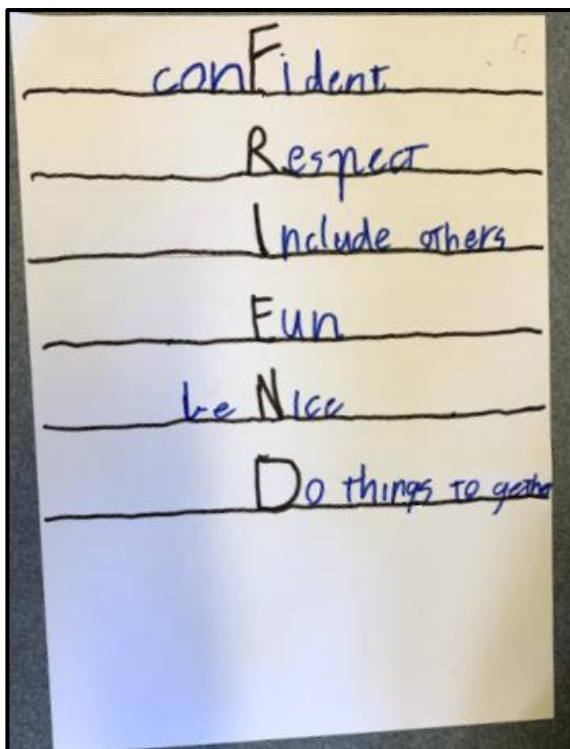 conFident
Respect
Include others
Eun
be Nice
Do things to gether